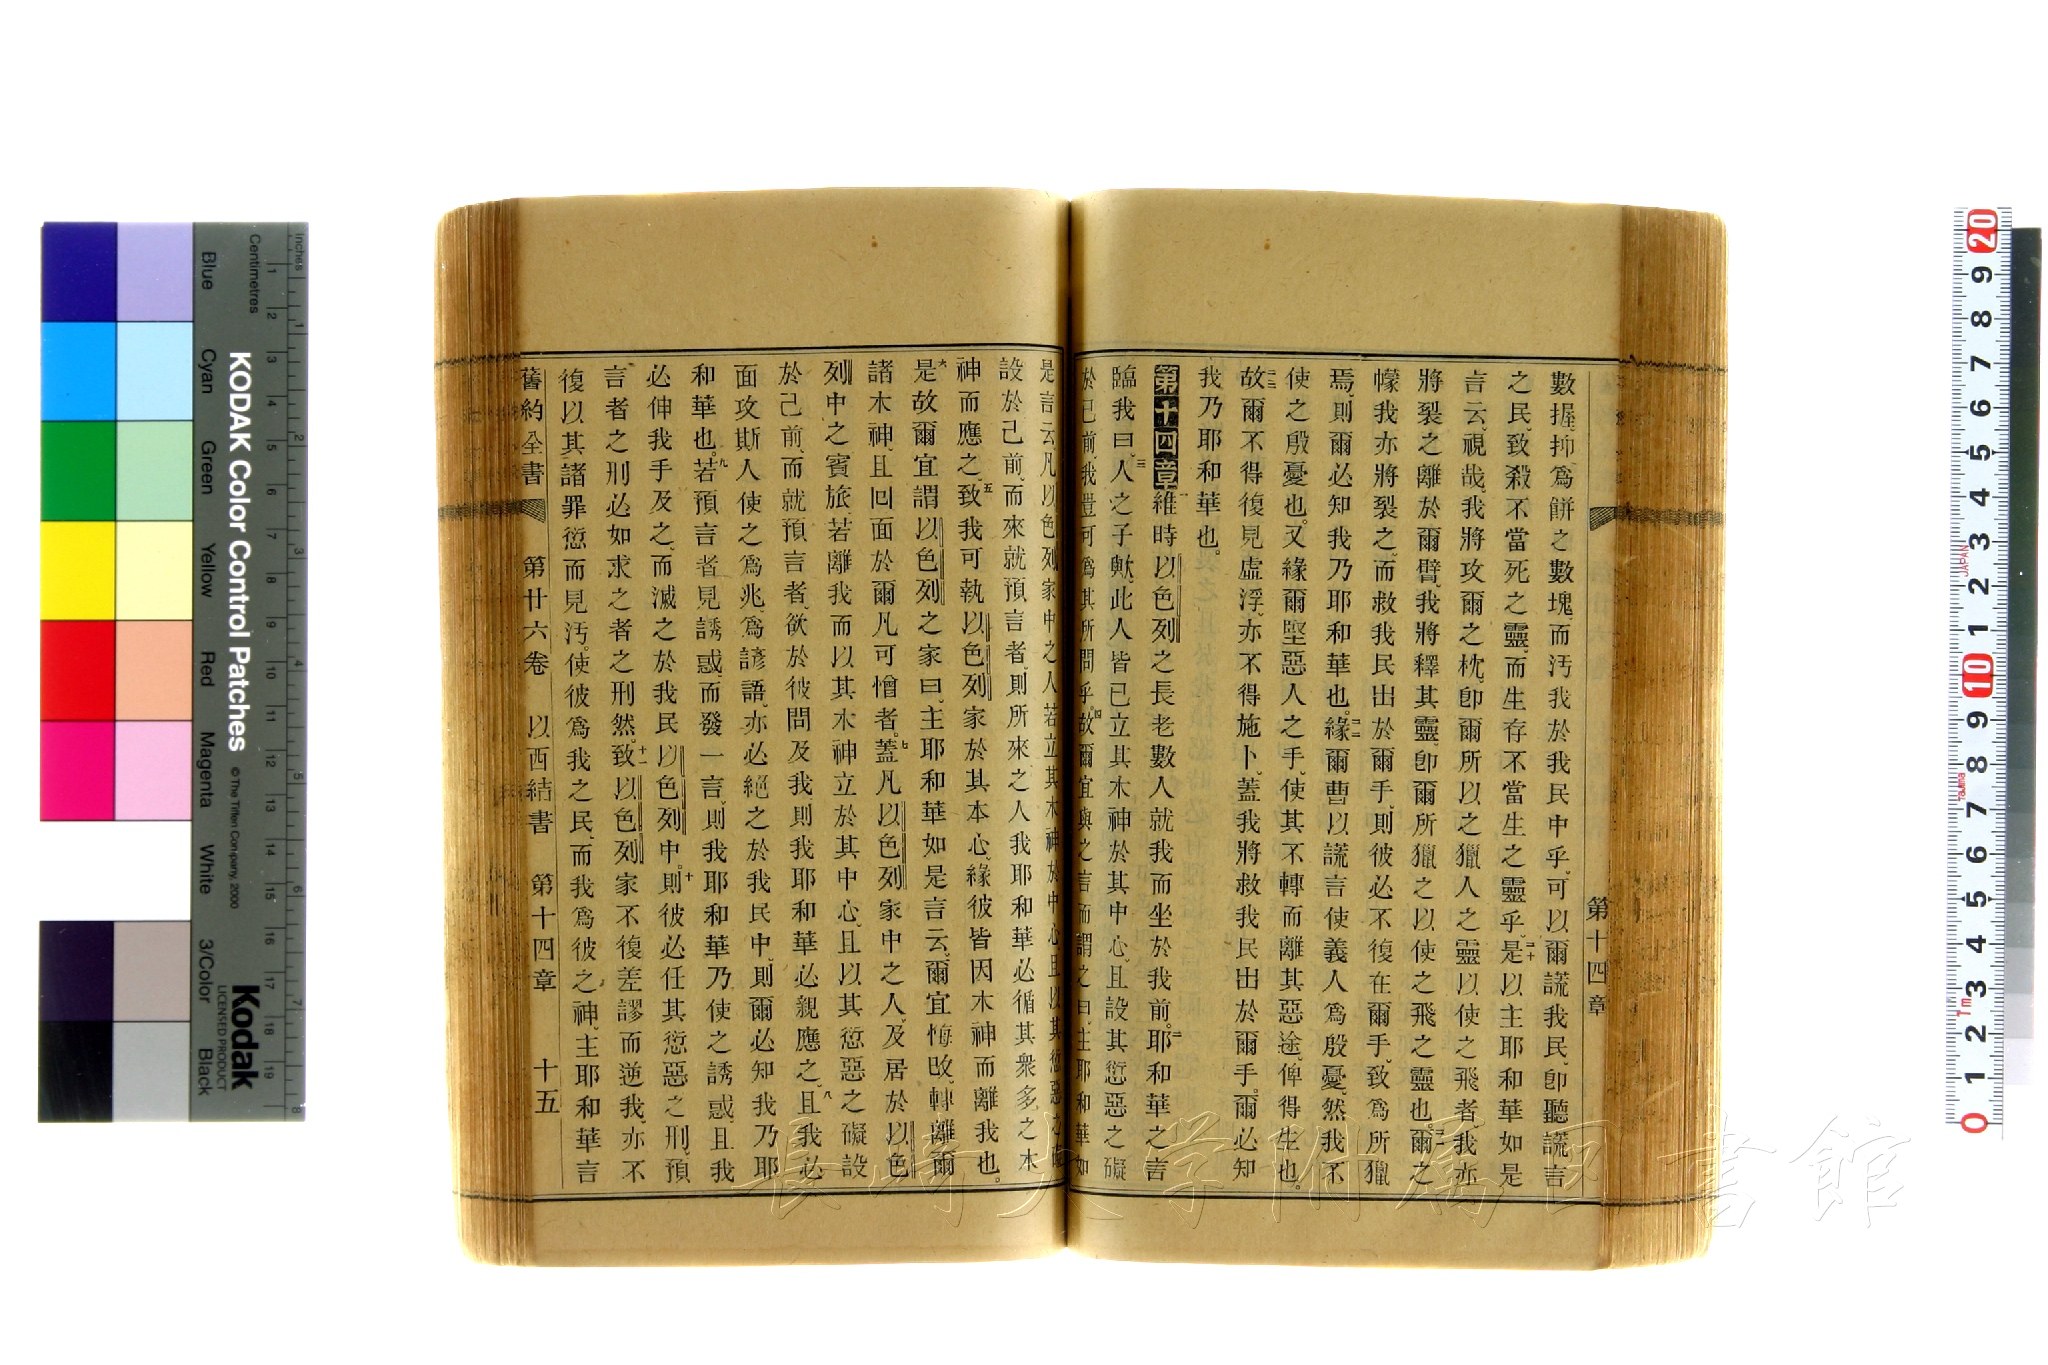 數握、抑爲餅之數塊、而汚我於我民中乎、可以爾謊我民、卽聽謊言
之民、致殺不當死之靈、而生存不當生之靈乎。二十是以主耶和華如是
言云、視哉、我將攻爾之枕、卽爾所以之獵人之靈以使之飛者、我亦
將裂之離於爾臂、我將釋其靈、卽爾所獵之以使之飛之靈也。二一爾之
幪我亦將裂之、而救我民出於爾手、則彼必不復在爾手、致爲所獵
焉、則爾必知我乃耶和華也。二二緣爾曹以謊言使義人爲殷憂、然我不
使之殷憂也、又緣爾堅惡人之手、使其不轉而離其惡途、俾得生也。
二三故爾不得復見虛浮、亦不得施卜、蓋我將救我民出於爾手、爾必知
我乃耶和華也。
第十四章 一維時以色列之長老數人就我而坐於我前。二耶和華之言
臨我曰、三人之子歟、此人皆已立其木神於其中心、且設其愆惡之礙
於己前、我豈可爲其所問乎。四故爾宜與之言而謂之曰、主耶和華如
是言云、凡以色列家中之人若立其木神於中心、且以其愆惡之礙
設於己前、而來就預言者、則所來之人我耶和華必循其衆多之木
神而應之、五致我可執以色列家於其本心、緣彼皆因木神而離我也。
六是故爾宜謂以色列之家曰、主耶和華如是言云、爾宜悔改、轉離爾
諸木神、且回面於爾凡可憎者、七蓋凡以色列家中之人、及居於以色
列中之賓旅、若離我而以其木神立於其中心、且以其愆惡之礙設
於己前、而就預言者、欲於彼問及我、則我耶和華必親應之、八且我必
面攻斯人使之爲兆、爲諺語、亦必絕之於我民中、則爾必知我乃耶
和華也。九若預言者見誘惑而發一言、則我耶和華乃使之誘惑、且我
必伸我手及之、而滅之於我民以色列中。十則彼必任其愆惡之刑、預
言者之刑必如求之者之刑然。十一致以色列家不復差謬而逆我、亦不
復以其諸罪愆而見汚、使彼爲我之民、而我爲彼之神、主耶和華言
舊約全書 第廿六卷 以西結書 第十四章 十五
第十四章
長崎大学附属図書館
KODAK Color Control Patches
© The Tiffen Company, 2000
Kodak
LICENSED PRODUCT
Inches
Centimetres
Blue
Cyan
Green
Yellow
Red
Magenta
White
3/Color
Black
1 2 3 4 5 6 7 8
1 2 3 4 5 6 7 8 9 10 11 12 13 14 15 16 17 18 19
20 9 8 7 6 5 4 3 2 1 10 9 8 7 6 5 4 3 2 1 0
JAPAN
Tajima
1m